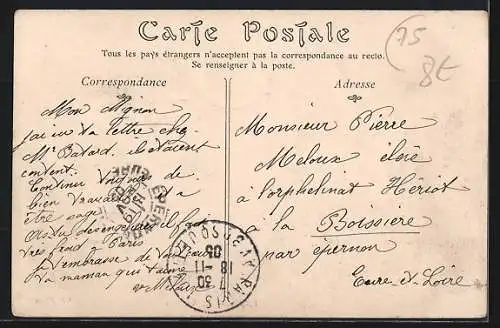 Carte Postale
Tous les pays étrangers n'acceptent pas la correspondance au recto.
Se renseigner à la poste.
75
8€
Correspondance
Adresse
Mon Mignon
j'ai vu ta lettre chez
Mr Batard. ils étaient
content.
Continue toujours de
bien travailler
être sage
As tu des engelures il fait
très froid à Paris
je t'embrasse de
ta maman qui t'aime
Monsieur Pierre
Meloux élève
à l'orphelinat Hériot
à la Boissière
par épernon
Eure-et-Loire
EPERNON
EURE
PARIS
18 - 11
05
7 30